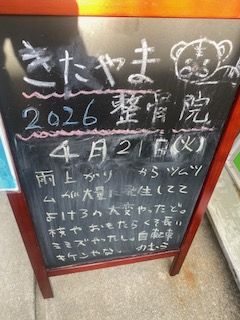 きたやま
2026 整骨院
4月21日(火)
雨上がり からツムツ
ムが大量に発生してて
よけるの大変やったど。
枝やおもたらくそ長い
ミミズやったし。自転車
キケンやな。 のむら